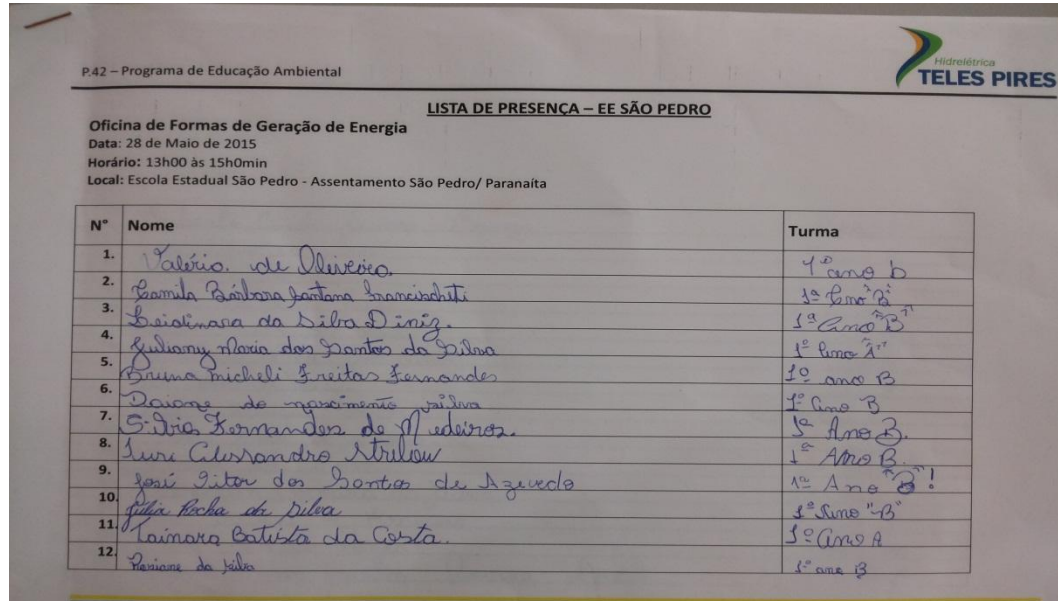 P.42 – Programa de Educação Ambiental
Hidrelétrica
TELES PIRES
LISTA DE PRESENÇA – EE SÃO PEDRO
Oficina de Formas de Geração de Energia
Data: 28 de Maio de 2015
Horário: 13h00 às 15h0min
Local: Escola Estadual São Pedro - Assentamento São Pedro/ Paranaíta
N° Nome Turma
1. Valério. de Oliveira. 1º ano b
2. Camila Bárbara Santana 1º Ano "B"
3. da Silva Diniz. 1ª Ano "B"
4. Juliany Maria dos Santos da Silva 1º Ano "A"
5. Bruna micheli Freitas Fernandes 1º ano B
6. Daiane do nascimento silva 1º Ano B
7. Silvia Fernandes de Medeiros. 1º Ano B.
8. Iuri Alessandro 1ª Ano B.
9. José Vitor dos Santos de Azevedo 1º Ano "B"!
10. Júlia Rocha da Silva 1º Ano "B"
11. Tainara Batista da Costa. 1º ano A
12. da Silva 1º ano B